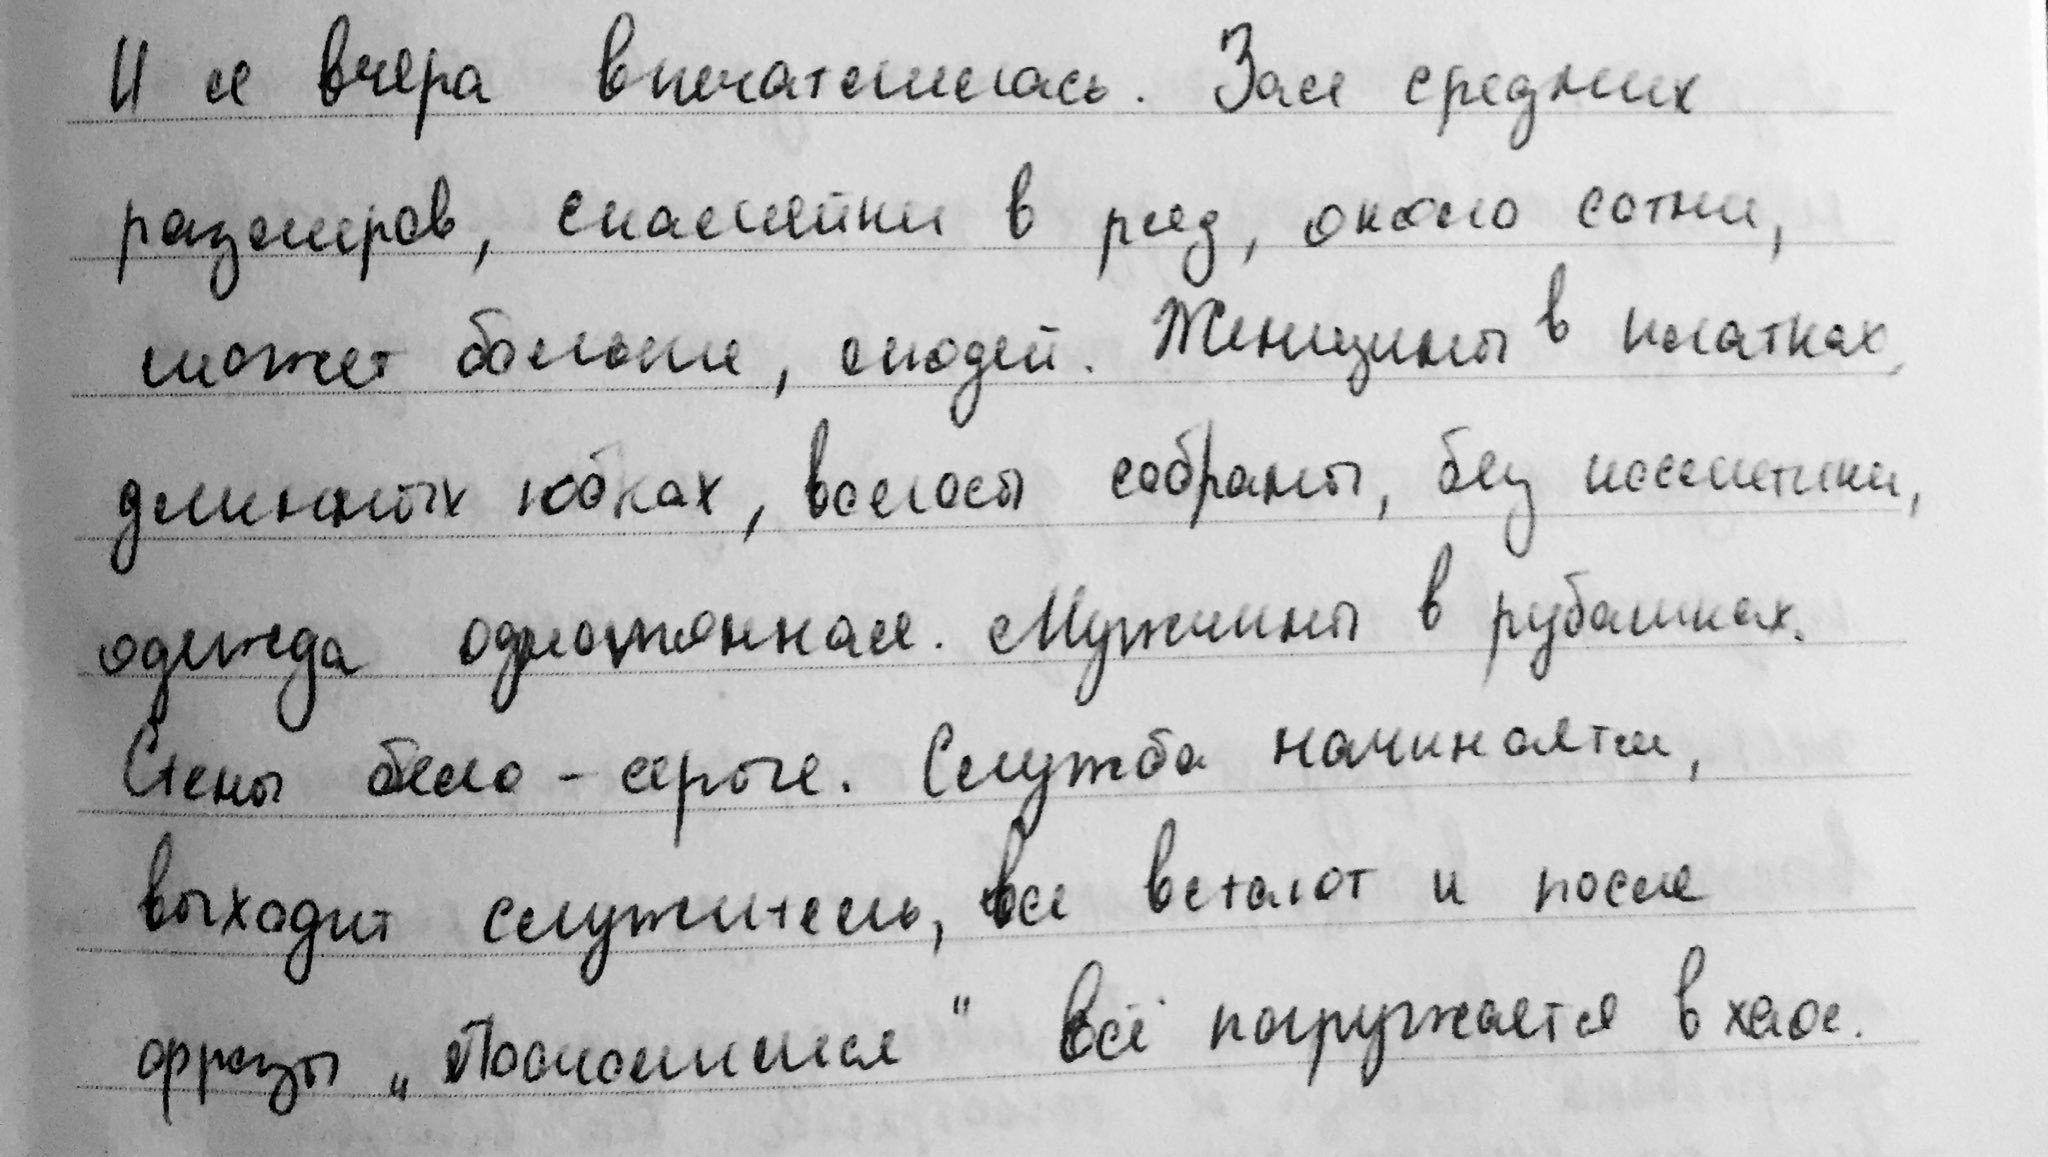 И я вчера впечатлилась. Зал средних
размеров, скамейки в ряд, около сотни,
может больше, людей. Женщины в платках,
длинных юбках, волосы собраны, без косметики,
одежда однотонная. Мужчины в рубашках.
Стены бело-серые. Служба начинается,
выходит служитель, все встают и после
фразы „Помолимся" всё погружается в хаос.